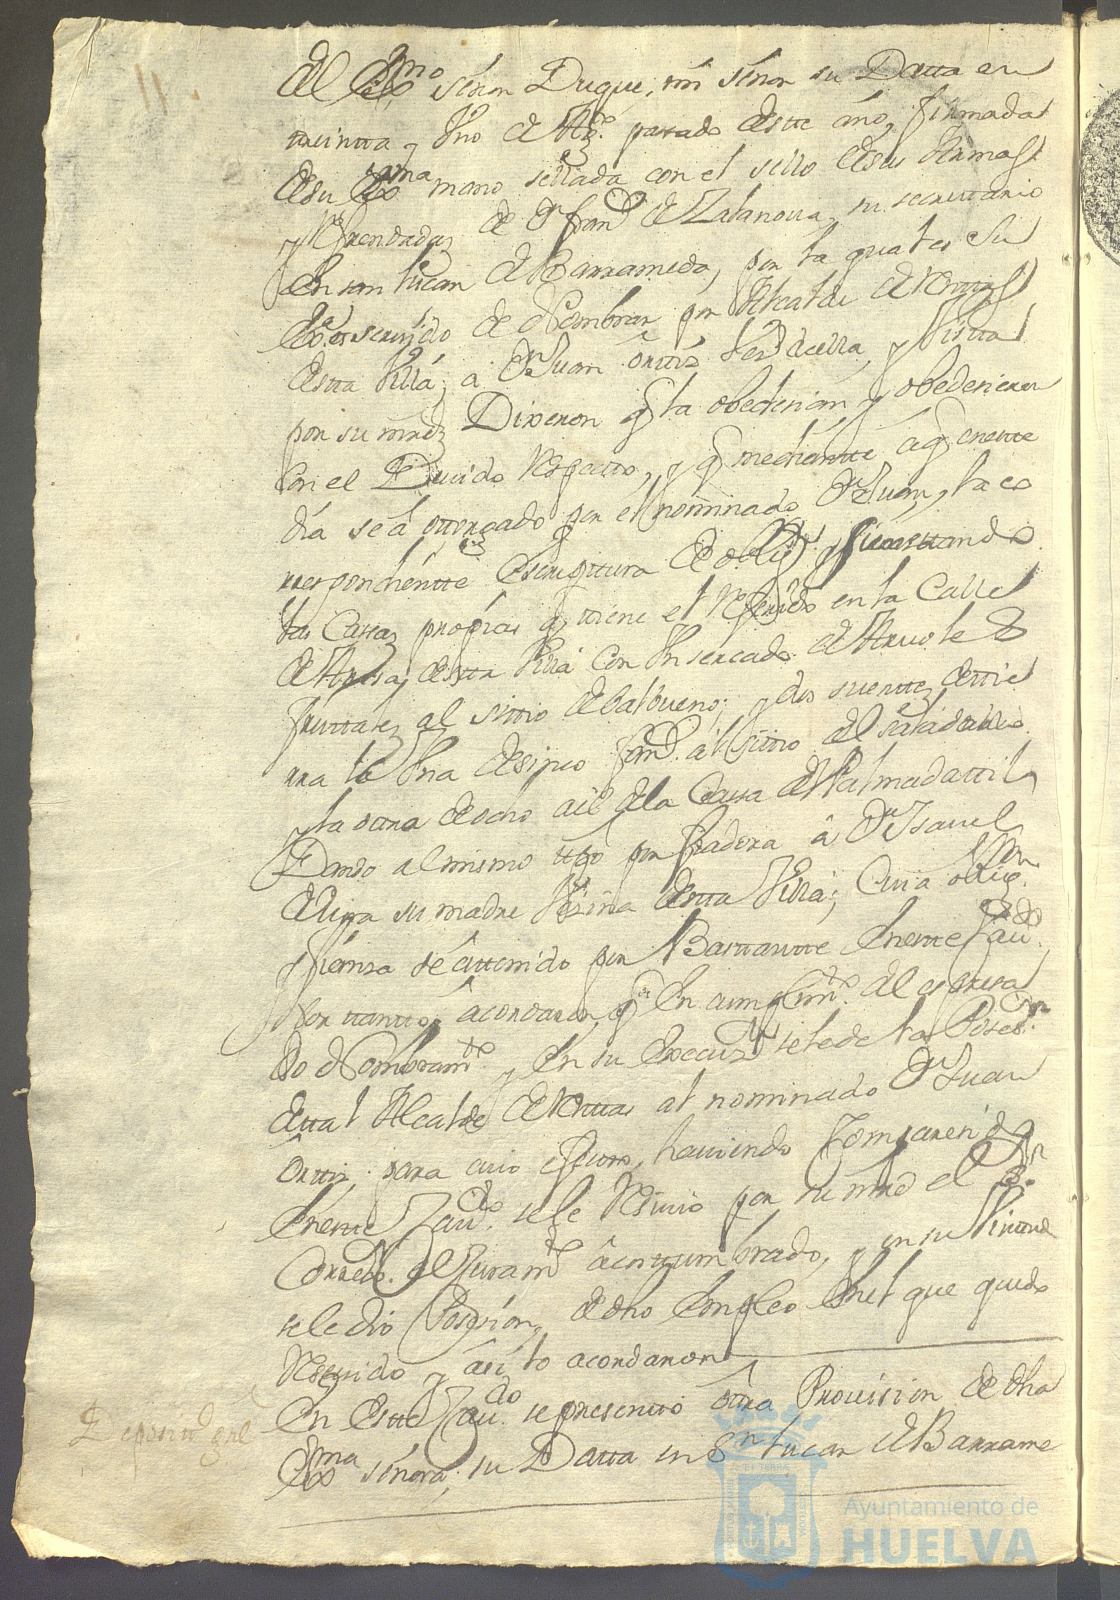 del Exmo señor Duque, mi señor su Datta en
treintta y Uno de Ag.to pasado deste año, firmada
de su Exma mano sellada con el sello de sus Armas
y Refrendada de Dn Franco de Zalanoua, su secrettario
en san lucar de Barrameda, por la qual es Su
Exa seruido de Nombrar por Alcalde de Renttas
destta Villa, a Dn Juan órttiz Vezo della, y Vistta
por su mrd Dixeron q la obedecian, y obedecieron
con el Deuido Respetto, y q mediantte áq eneste
dia se á ottorgado por el nominado Dn Juan, la co
rrespondientte Escripttura de oblig.n
las Casas própias q ttiene el Referido en la Calle
destta Villa con Un sercado de Aruoles
fruttales al sittio de balbueno; y dos suerttes de ttie
rra la Una de sinco fan.s al sittio del
y la ottra de ocho al de la Casa del Palmadattil
Dando al mismo ttpo por fiadora â Da Ysauel
su madre Vezina destta Villa; Cuia oblig.n
y fianza se â ttenido por Basttantte Eneste Cau.do
Por ttantto, acordaron q En cumplim.to del espresa
do Nombram.to y en su Execuz.n se le de la Poses.n
de ttal Alcalde de Renttas al nominado Dn Juan
Orttiz, para cuio efectto, hauiendo Comparecido
Eneste Cau.do se le Reciuio por su mrd el S.r
Correx.r el Juram.to acosttumbrado, y en su Virttud
se le dio Posesion, de dho Empleo Enel que quedo
Reseuido y ási lo acordaron
Deposit.o gnl
En Estte Cau.do se presentto óttra Prouision de dha
Exma señora; su Datta en Sn lucar de Barrame
Ayuntamiento de
HUELVA